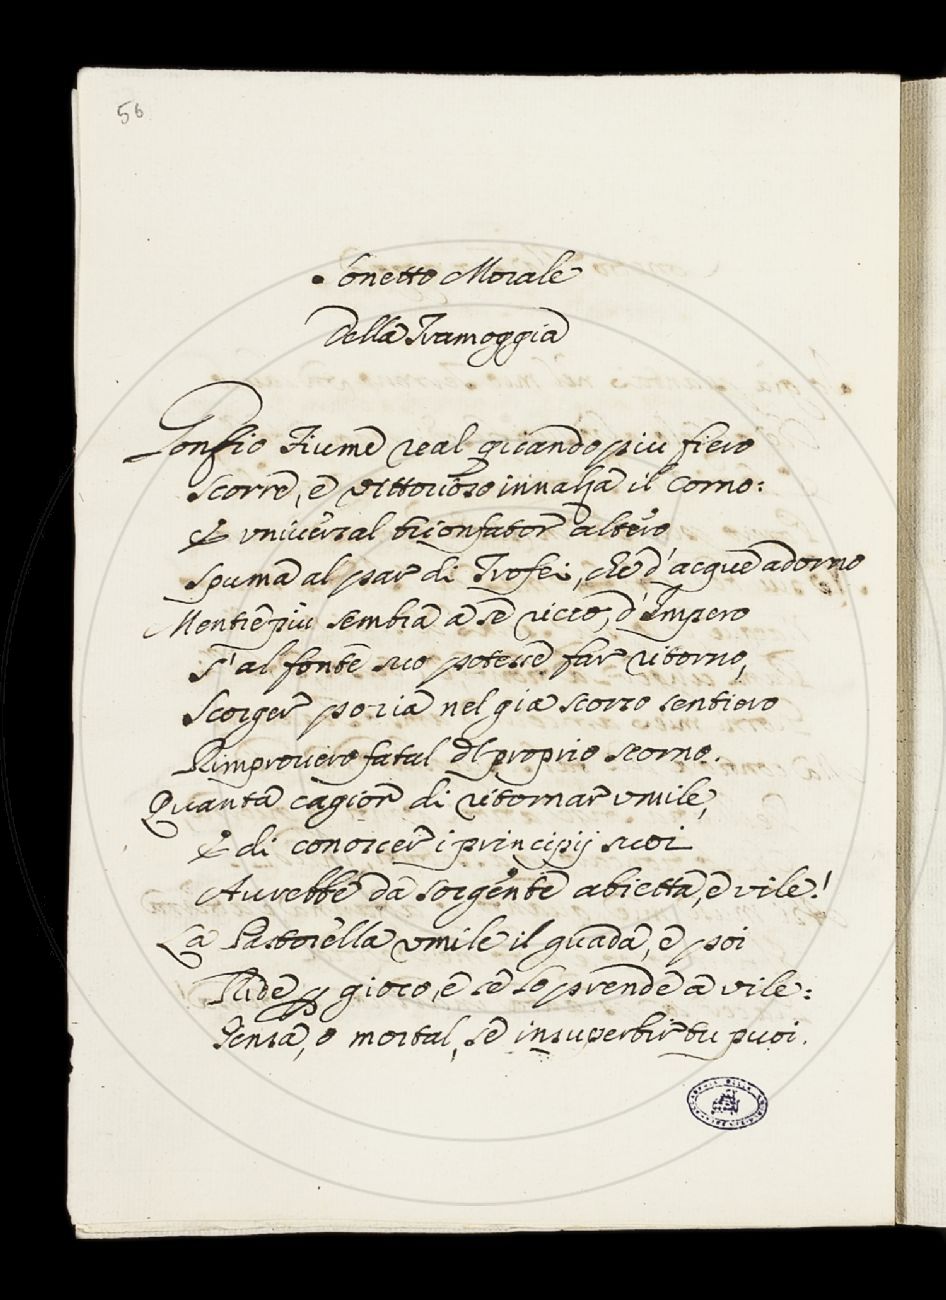 56
Sonetto Morale
della Tramoggia
Gonfio Fiume real quando piu fiero
Scorre, e vittorioso innalza il Corno:
E vniuersal trionfator altero
Spuma al par di Trofei, che d'acque adorno
Mentre più sembra a se ricco, d'Impero
S'al fonte suo potesse far ritorno,
Scorger poria nel gia scorso sentiero
Rimprouero fatal del proprio scorno.
Quanta cagion di ritornar vmile,
E di conoscer i principij suoi
Aurebbe da sorgente abietta, e vile!
La Pastorella vmile il guada, e poi
Ride p gioco, e se lo prende a vile:
Pensa, o mortal, se insuperbir tu puoi.